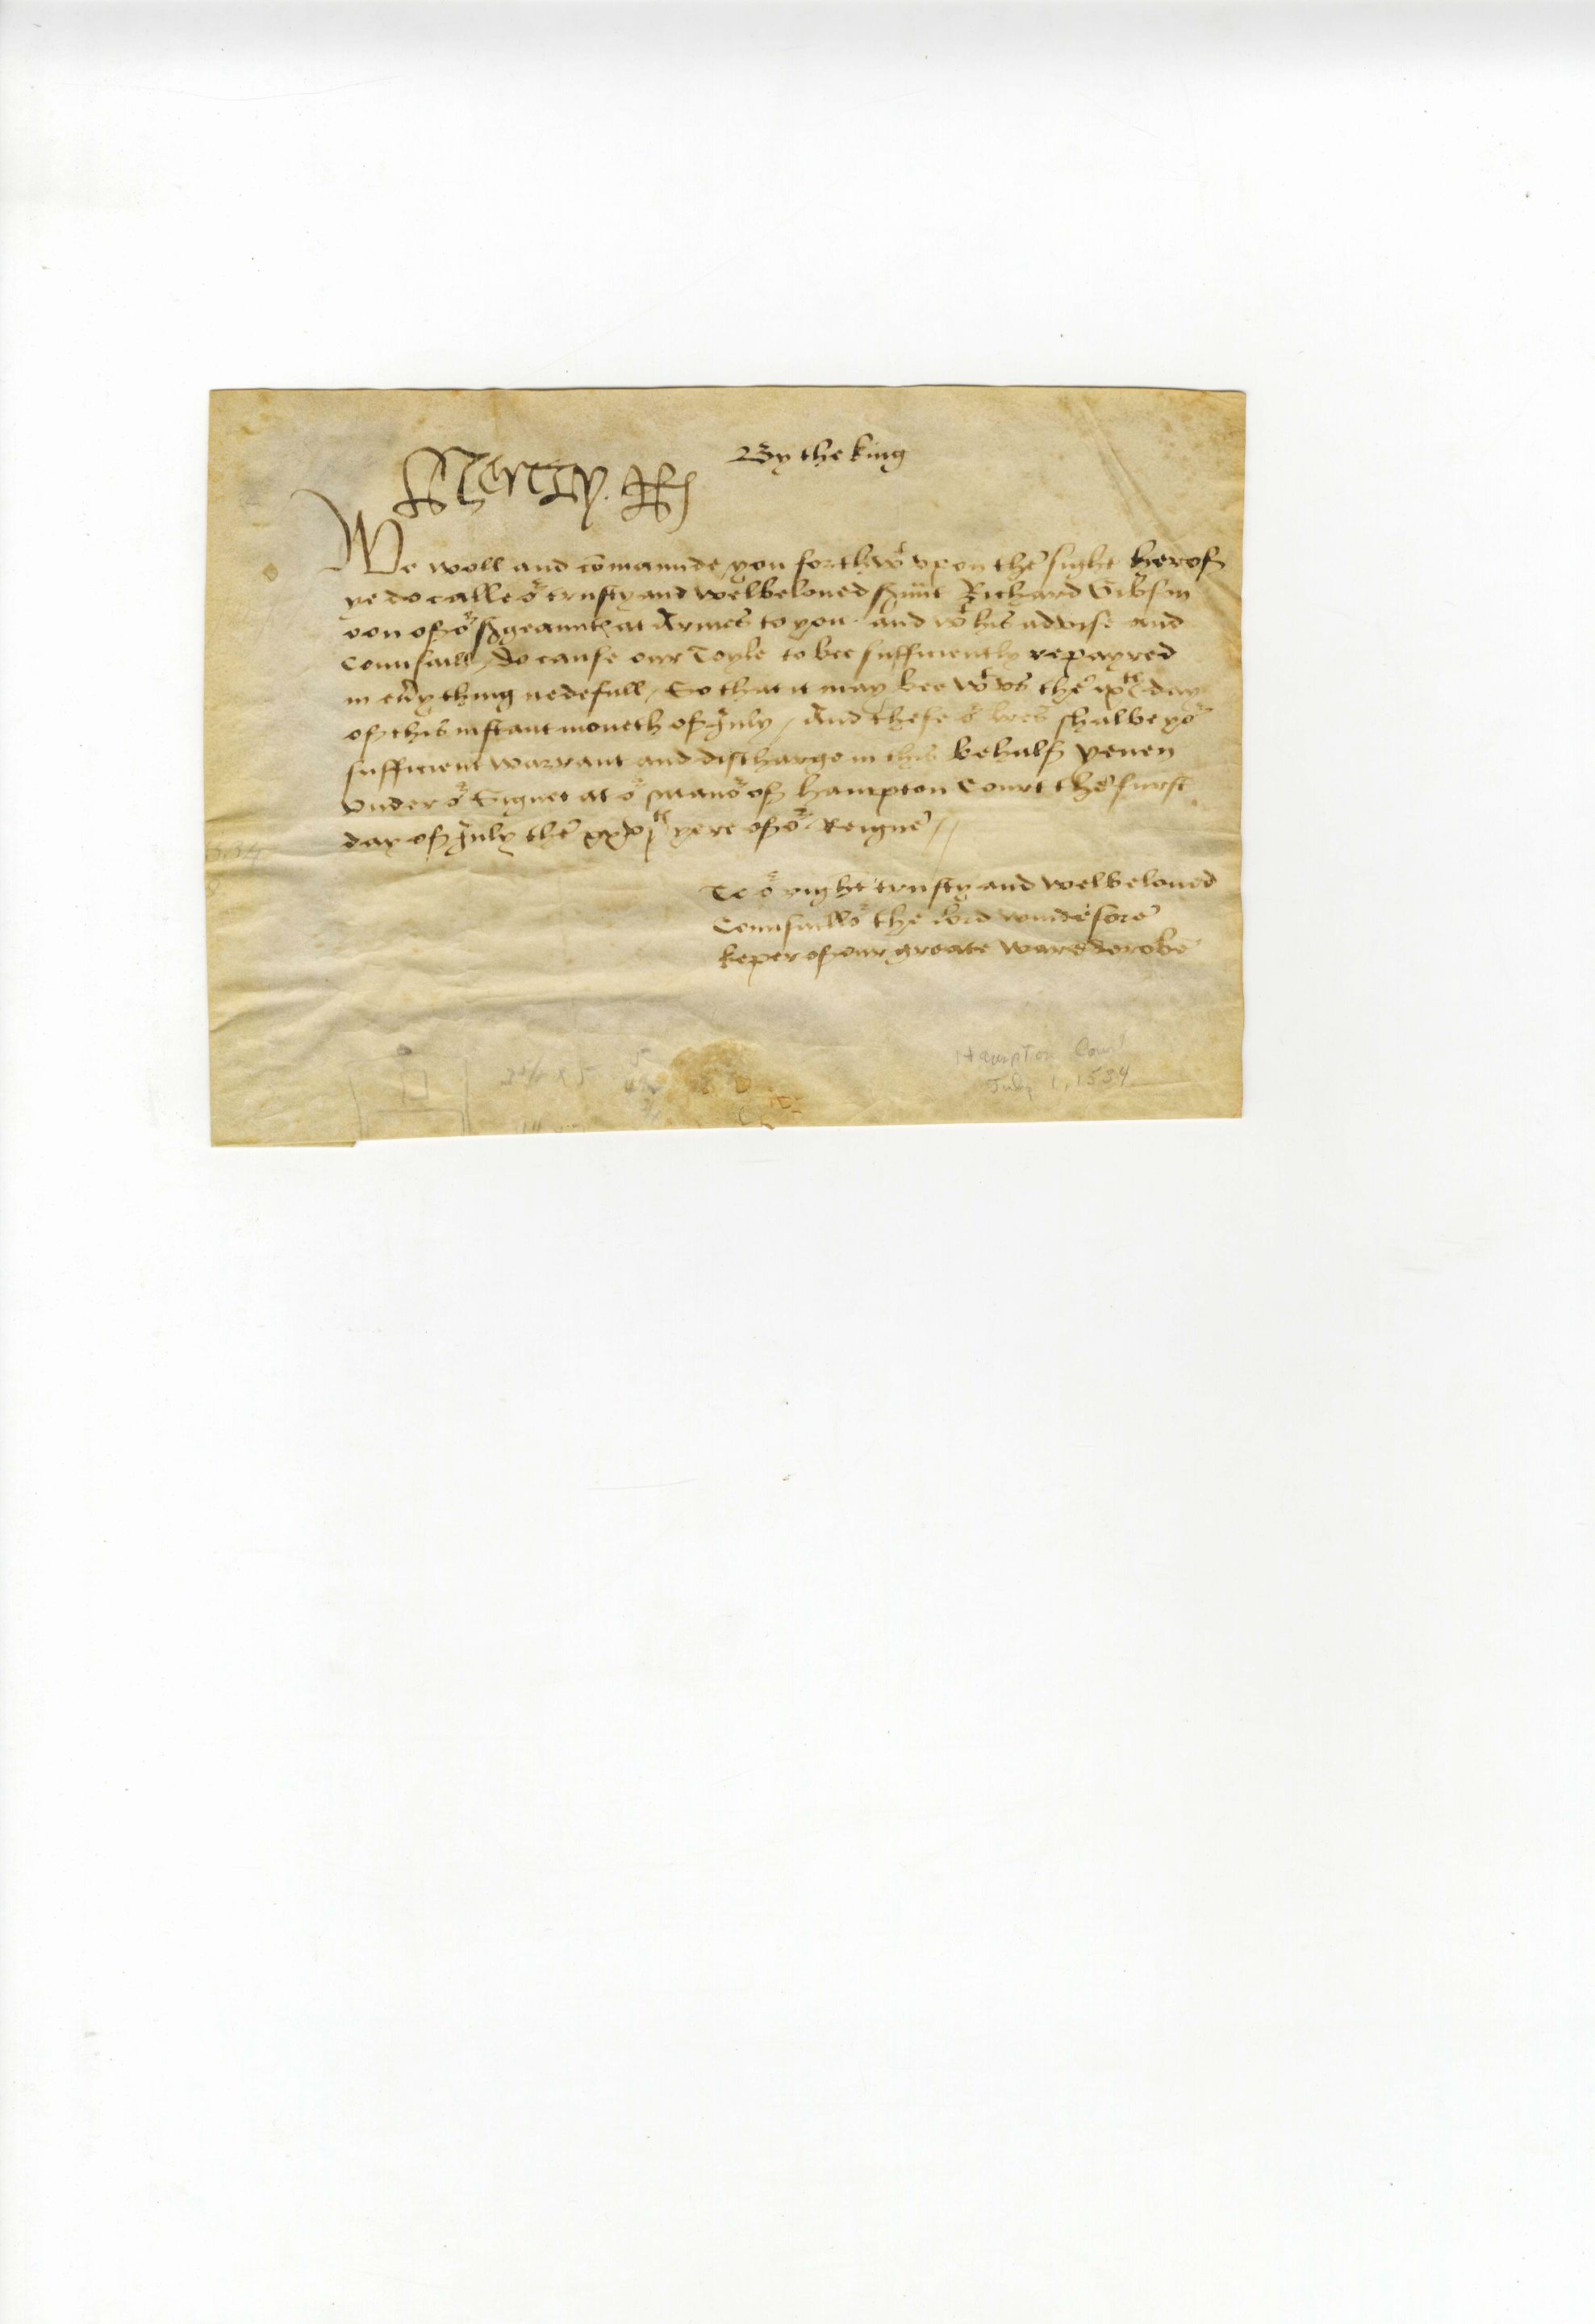 By the king
Henry R
We woll and cōmaunde you forthwᵗ vpon the sight herof
ye do calle oʳ trusty and welbeloued sʳuūt Richard Gibson
oon of oʳ sergeaunts at Armes to you and wᵗ his advise and
Counsaill, do cause our Toyle to bee sufficiently repayred
in eūy thing nedefull, So that it may bee wᵗ vs the ixᵗʰ day
of this instant moneth of July, And these oʳ lres shalbe yoʳ
sufficient warrant and discharge in this behalf yeuen
vnder oʳ Signet at oʳ Manoʳ of Hampton Court the furst
day of July the xxvjᵗʰ yere of oʳ Reigne //
To oʳ right trusty and welbeloued
Counsailloʳ the lord windesore
keper of our greate warderobe
Hampton Court
July 1, 1534